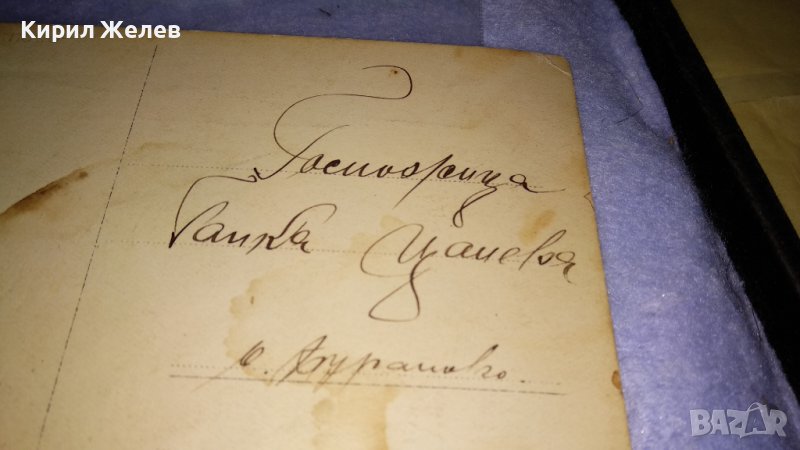 Кирил Желев
Господжица
Ганка Цанева
с. Дураново.
BAZAR